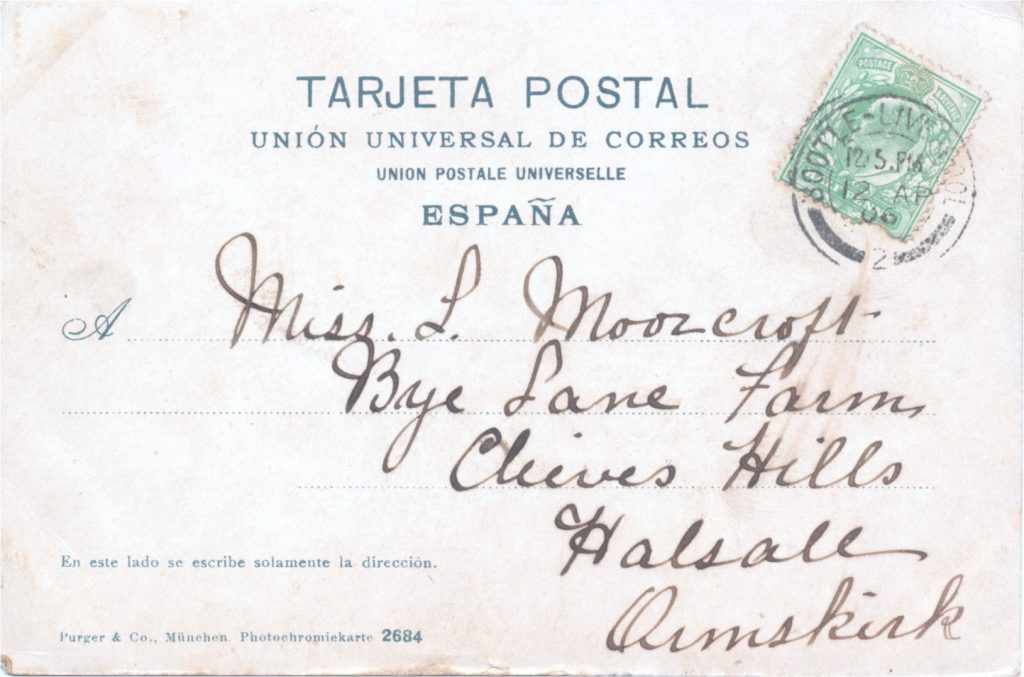 TARJETA POSTAL
UNIÓN UNIVERSAL DE CORREOS
UNION POSTALE UNIVERSELLE
ESPAÑA
POSTAGE
BOOTLE-LIV
12.5.PM
12 AP
06
2
A Miss. L. Moorcroft
Bye Lane Farm
Clieves Hills
Halsall
Ormskirk
En este lado se escribe solamente la dirección.
Purger & Co., München. Photochromiekarte 2684